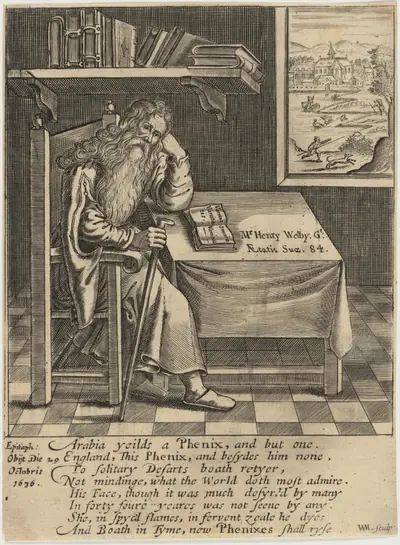 Mr Henry Welby. Gt.
Ætatis Suæ. 84.
Epitaph:
Obijt Die 29
Octobris
1636.
Arabia yeilds a Phenix, and but one.
England, This Phenix, and besydes him none.
To solitary Desarts boath retyer,
Not mindinge, what the World doth most admire.
His Face, though it was much desyr'd by many
In forty foure yeares was not seene by any.
She, in spyc'd flames, in fervent zeale he dyes
And Boath in Tyme, new Phenixes shall ryse
WM. sculp